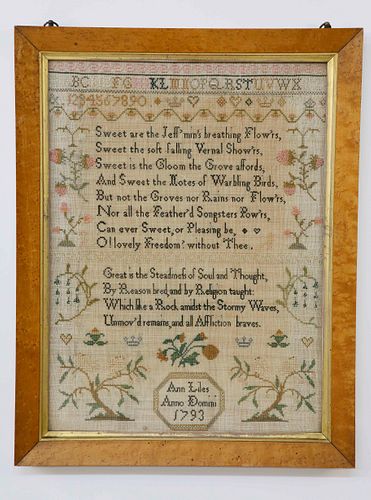 BC FG KL M OPQRSTUVWX
1234567890
Sweet are the Jeff'min's breathing Flow'rs,
Sweet the soft falling Vernal Show'rs,
Sweet is the Gloom the Grove affords,
And Sweet the Notes of Warbling Birds,
But not the Groves nor Rains nor Flow'rs,
Nor all the Feather'd Songsters Pow'rs,
Can ever Sweet, or Pleasing be,
O! lovely Freedom? without Thee.
Great is the Steadineſs of Soul and Thought,
By Reason bred, and by Religion taught:
Which like a Rock amidst the Stormy Waves,
Unmov'd remains, and all Affliction braves.
Ann Liles
Anno Domini
1793